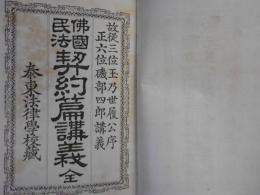 故從三位玉乃世履公序
正六位磯部四郎講義
佛國民法契約篇講義 全
泰東法律學校藏